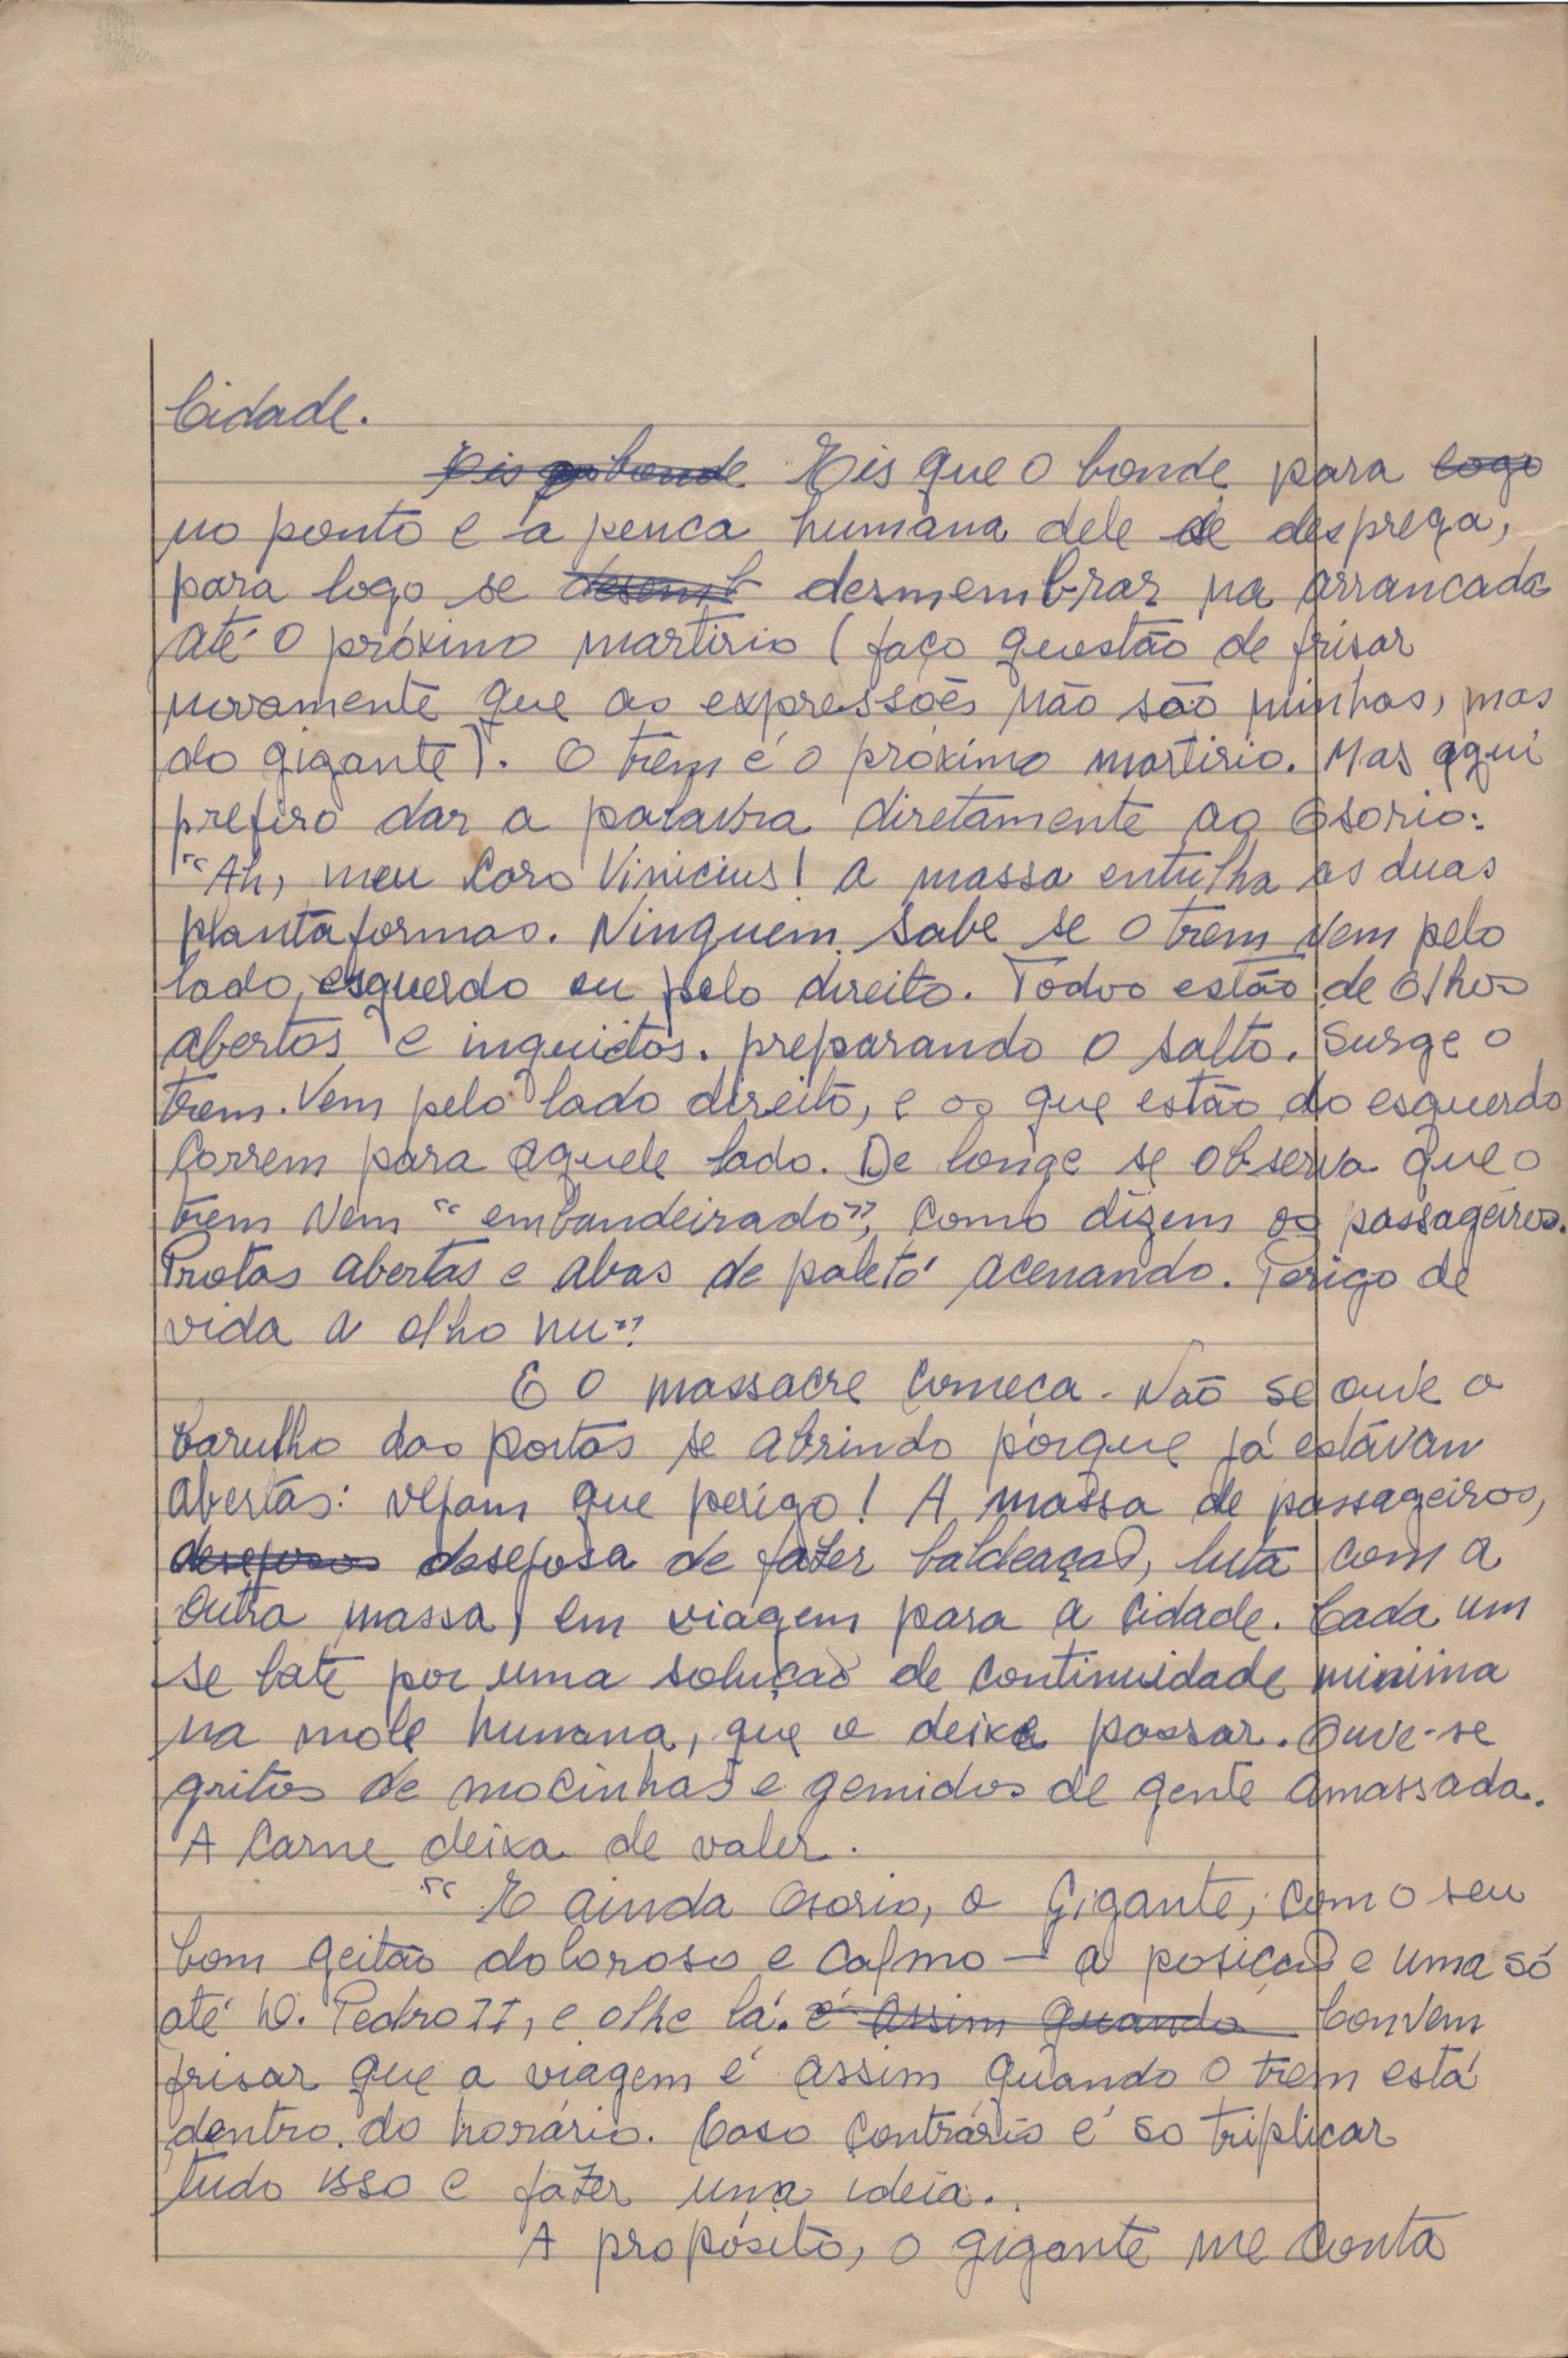 Cidade.
Eis que o bonde Eis que o bonde para logo
no ponto e a penca humana dele se desprega,
para logo se desemb desmembrar na arrancada
até o próximo martirio (faço questão de frisar
novamente que as expressões não são minhas, mas
do gigante). O trem é o próximo martirio. Mas aqui
prefiro dar a palavra diretamente ao Osorio:
"Ah, meu caro Vinicius! a massa entulha as duas
plantaformas. Ninguem sabe se o trem vem pelo
lado esquerdo ou pelo direito. Todos estão de olhos
abertos e inquiétos. preparando o salto. Surge o
trem. Vem pelo lado direito, e os que estão do esquerdo
correm para aquele lado. De longe se observa que o
trem vem "embandeirado", como dizem os passageiros.
Protas abertas e abas de paletó acenando. Perigo de
vida a olho nu".
E o massacre comeca. Não se ouve o
barulho das portas se abrindo porque já estávam
abertas: vejam que perigo! A massa de passageiros,
desejosos desejosa de fazer baldeação, luta com a
outra massa, em viagem para a cidade. Cada um
se bate por uma solução de continuidade minima
na mole humana, que o deixe passar. Ouve-se
gritos de mocinhas e gemidos de gente amassada.
A carne deixa de valer.
"E ainda Osorio, o Gigante, com o seu
bom geitão doloroso e calmo — a posicão e uma só
até D. Pedro II, e olhe lá. é assim quando Convem
frisar que a viagem é assim quando o trem está
dentro do horário. Caso contrário é so triplicar
tudo isso e fazer uma ideia..
A propósito, o gigante me conta